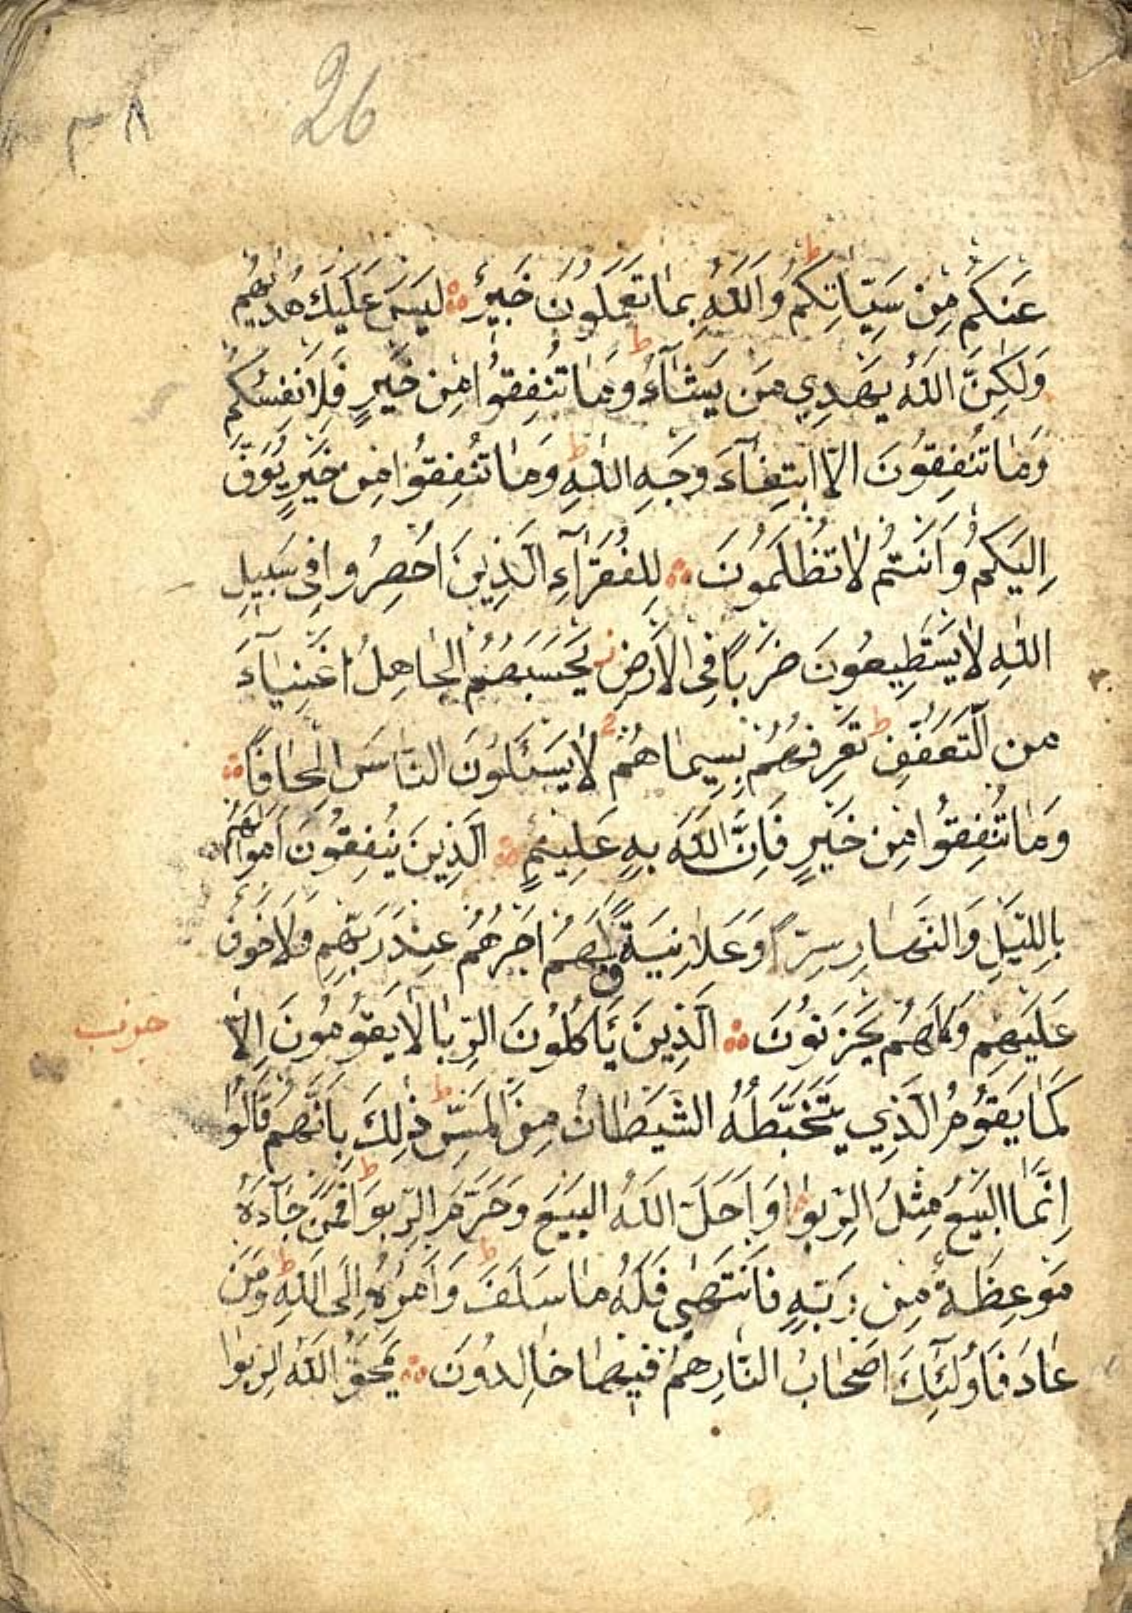 26
٣٨
عَنْكُمْ مِنْ سَيِّاٰتِكُمْ ط وَاَللّٰهُ بِمٰا تَعْمَلُونَ خَبِيرٌ لَيْسَ عَلَيْكَ هُدٰيهُمْ
وَلٰكِنَّ اللّٰهَ يَهْدِي مَنْ يَشٰٓاءُ ط وَمٰا تُنْفِقُوا مِنْ خَيْرٍ فَلِاَنْفُسِكُمْ
وَمٰا تُنْفِقُونَ اِلَّا ابْتِغٰٓاءَ وَجْهِ اللّٰهِ ط وَمٰا تُنْفِقُوا مِنْ خَيْرٍ يُوَفَّ
اِلَيْكُمْ وَاَنْتُمْ لٰا تُظْلَمُونَ لِلْفُقَرٰٓاءِ الَّذِينَ اُحْصِرُوا فِى سَبِيلِ
اللّٰهِ لٰا يَسْتَطِيعُونَ ضَرْبًا فِى الْاَرْضِ يَحْسَبُهُمُ الْجٰاهِلُ اَغْنِيٰٓاءَ
مِنَ التَّعَفُّفِ ط تَعْرِفُهُمْ بِسِيمٰاهُمْ لٰا يَسْئَلُونَ النّٰاسَ اِلْحٰافًا
وَمٰا تُنْفِقُوا مِنْ خَيْرٍ فَاِنَّ اللّٰهَ بِهِ عَلِيمٌ الَّذِينَ يُنْفِقُونَ اَمْوٰالَهُمْ
بِاللَّيْلِ وَالنَّهٰارِ سِرًّا وَعَلٰانِيَةً فَلَهُمْ اَجْرُهُمْ عِنْدَ رَبِّهِمْ وَلٰا خَوْفٌ
عَلَيْهِمْ وَلٰا هُمْ يَحْزَنُونَ الَّذِينَ يَاْكُلُونَ الرِّبٰا لٰا يَقُومُونَ اِلّٰا
حزب
كَمٰا يَقُومُ الَّذِي يَتَخَبَّطُهُ الشَّيْطٰانُ مِنَ الْمَسِّ ط ذٰلِكَ بِاَنَّهُمْ قٰالُوا
اِنَّمَا الْبَيْعُ مِثْلُ الرِّبٰوا وَاَحَلَّ اللّٰهُ الْبَيْعَ وَحَرَّمَ الرِّبٰوا ط فَمَنْ جٰٓاءَهُ
مَوْعِظَةٌ مِنْ رَبِّهِ فَانْتَهٰى فَلَهُ مٰا سَلَفَ ط وَاَمْرُهُ اِلَى اللّٰهِ ط وَمَنْ
عٰادَ فَاُولٰٓئِكَ اَصْحٰابُ النّٰارِ هُمْ فِيهٰا خٰالِدُونَ يَمْحَقُ اللّٰهُ الرِّبٰوا